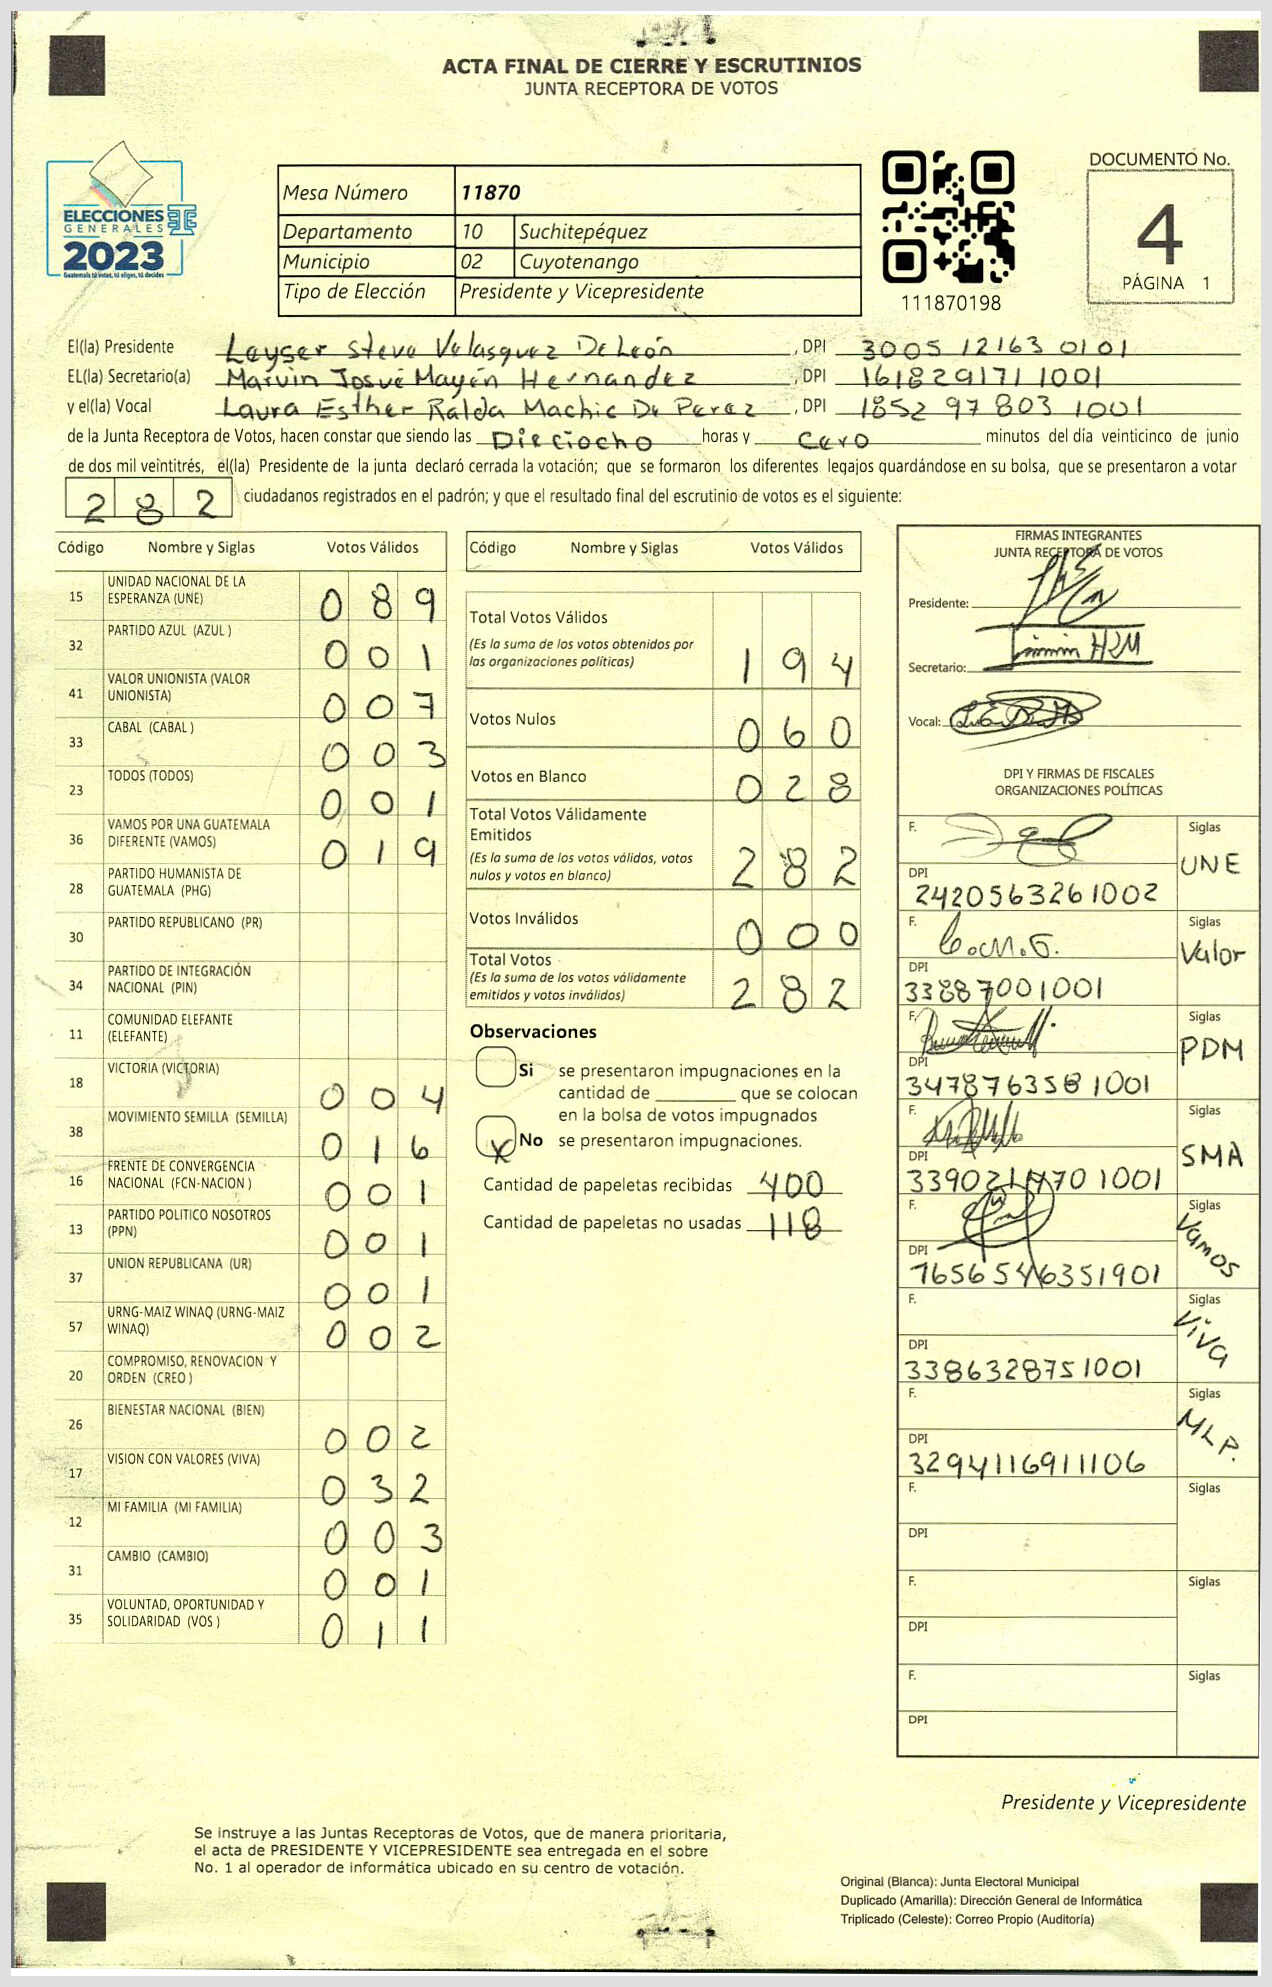 ACTA FINAL DE CIERRE Y ESCRUTINIOS
JUNTA RECEPTORA DE VOTOS
ELECCIONES
GENERALES
2023
Guatemala tú votas, tú eliges, tú decides
Mesa Número 11870
Departamento 10 Suchitepéquez
Municipio 02 Cuyotenango
Tipo de Elección Presidente y Vicepresidente
111870198
DOCUMENTO No.
4
PÁGINA 1
El(la) Presidente Leyser Steve Velasquez De León, DPI 3005 12163 0101
EL(la) Secretario(a) Marvin Josué Mayén Hernandez, DPI 161829171 1001
y el(la) Vocal Laura Esther Ralda Machic De Perez, DPI 1852 97803 1001
de la Junta Receptora de Votos, hacen constar que siendo las Dieciocho horas y Cero minutos del día veinticinco de junio
de dos mil veintitrés, el(la) Presidente de la junta declaró cerrada la votación; que se formaron los diferentes legajos guardándose en su bolsa, que se presentaron a votar
282 ciudadanos registrados en el padrón; y que el resultado final del escrutinio de votos es el siguiente:
Código Nombre y Siglas Votos Válidos
15 UNIDAD NACIONAL DE LA ESPERANZA (UNE) 089
32 PARTIDO AZUL (AZUL ) 001
41 VALOR UNIONISTA (VALOR UNIONISTA) 007
33 CABAL (CABAL ) 003
23 TODOS (TODOS) 001
36 VAMOS POR UNA GUATEMALA DIFERENTE (VAMOS) 019
28 PARTIDO HUMANISTA DE GUATEMALA (PHG)
30 PARTIDO REPUBLICANO (PR)
34 PARTIDO DE INTEGRACIÓN NACIONAL (PIN)
11 COMUNIDAD ELEFANTE (ELEFANTE)
18 VICTORIA (VICTORIA) 004
38 MOVIMIENTO SEMILLA (SEMILLA) 016
16 FRENTE DE CONVERGENCIA NACIONAL (FCN-NACION ) 001
13 PARTIDO POLITICO NOSOTROS (PPN) 001
37 UNION REPUBLICANA (UR) 001
57 URNG-MAIZ WINAQ (URNG-MAIZ WINAQ) 002
20 COMPROMISO, RENOVACION Y ORDEN (CREO )
26 BIENESTAR NACIONAL (BIEN) 002
17 VISION CON VALORES (VIVA) 032
12 MI FAMILIA (MI FAMILIA) 003
31 CAMBIO (CAMBIO) 001
35 VOLUNTAD, OPORTUNIDAD Y SOLIDARIDAD (VOS ) 011
Código Nombre y Siglas Votos Válidos
Total Votos Válidos
(Es la suma de los votos obtenidos por
las organizaciones políticas) 194
Votos Nulos 060
Votos en Blanco 028
Total Votos Válidamente
Emitidos
(Es la suma de los votos válidos, votos
nulos y votos en blanco) 282
Votos Inválidos 000
Total Votos
(Es la suma de los votos válidamente
emitidos y votos inválidos) 282
Observaciones
Si se presentaron impugnaciones en la
cantidad de ________ que se colocan
en la bolsa de votos impugnados
X No se presentaron impugnaciones.
Cantidad de papeletas recibidas 400
Cantidad de papeletas no usadas 118
FIRMAS INTEGRANTES
JUNTA RECEPTORA DE VOTOS
Presidente:
Secretario:
Vocal:
DPI Y FIRMAS DE FISCALES
ORGANIZACIONES POLÍTICAS
F. Siglas UNE
DPI 2420563261002
F. Siglas Valor
DPI 33887001001
F. Siglas PDM
DPI 3478763581001
F. Siglas SMA
DPI
F. Siglas Vamos
DPI
F. Siglas VIVA
DPI 3386328751001
F. Siglas MLP.
DPI 3294116911106
F. Siglas
DPI
F. Siglas
DPI
F. Siglas
DPI
Presidente y Vicepresidente
Se instruye a las Juntas Receptoras de Votos, que de manera prioritaria,
el acta de PRESIDENTE Y VICEPRESIDENTE sea entregada en el sobre
No. 1 al operador de informática ubicado en su centro de votación.
Original (Blanca): Junta Electoral Municipal
Duplicado (Amarilla): Dirección General de Informática
Triplicado (Celeste): Correo Propio (Auditoría)